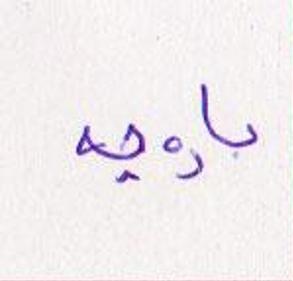 باروجه